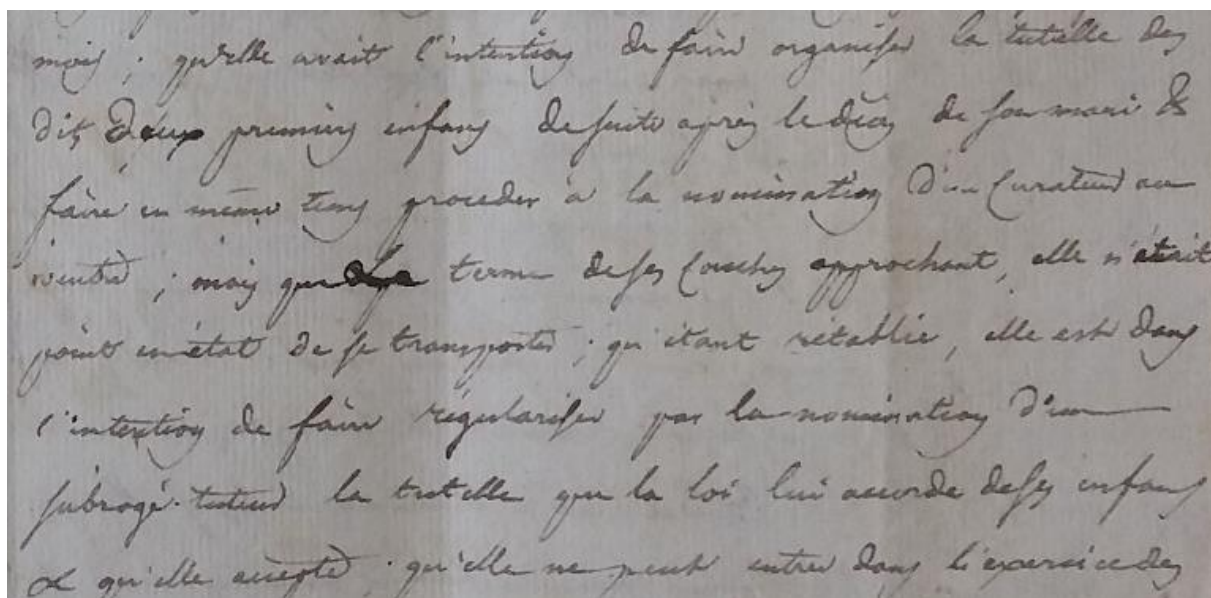 mois ; qu'elle avait l'intention de faire organiser la tutelle des
dits deux premiers enfans de suite après le décès de son mari &
faire en même tems proceder à la nomination d'un Curateur au
ventre ; mais que le terme de ses Couches approchant, elle n'était
point en état de se transporter ; qu'étant rétablie, elle est dans
l'intention de faire régulariser par la nomination d'un
subrogé-tuteur la tutelle que la loi lui accorde de ses enfans
& qu'elle accepte ; qu'elle ne peut entrer dans l'exercice des